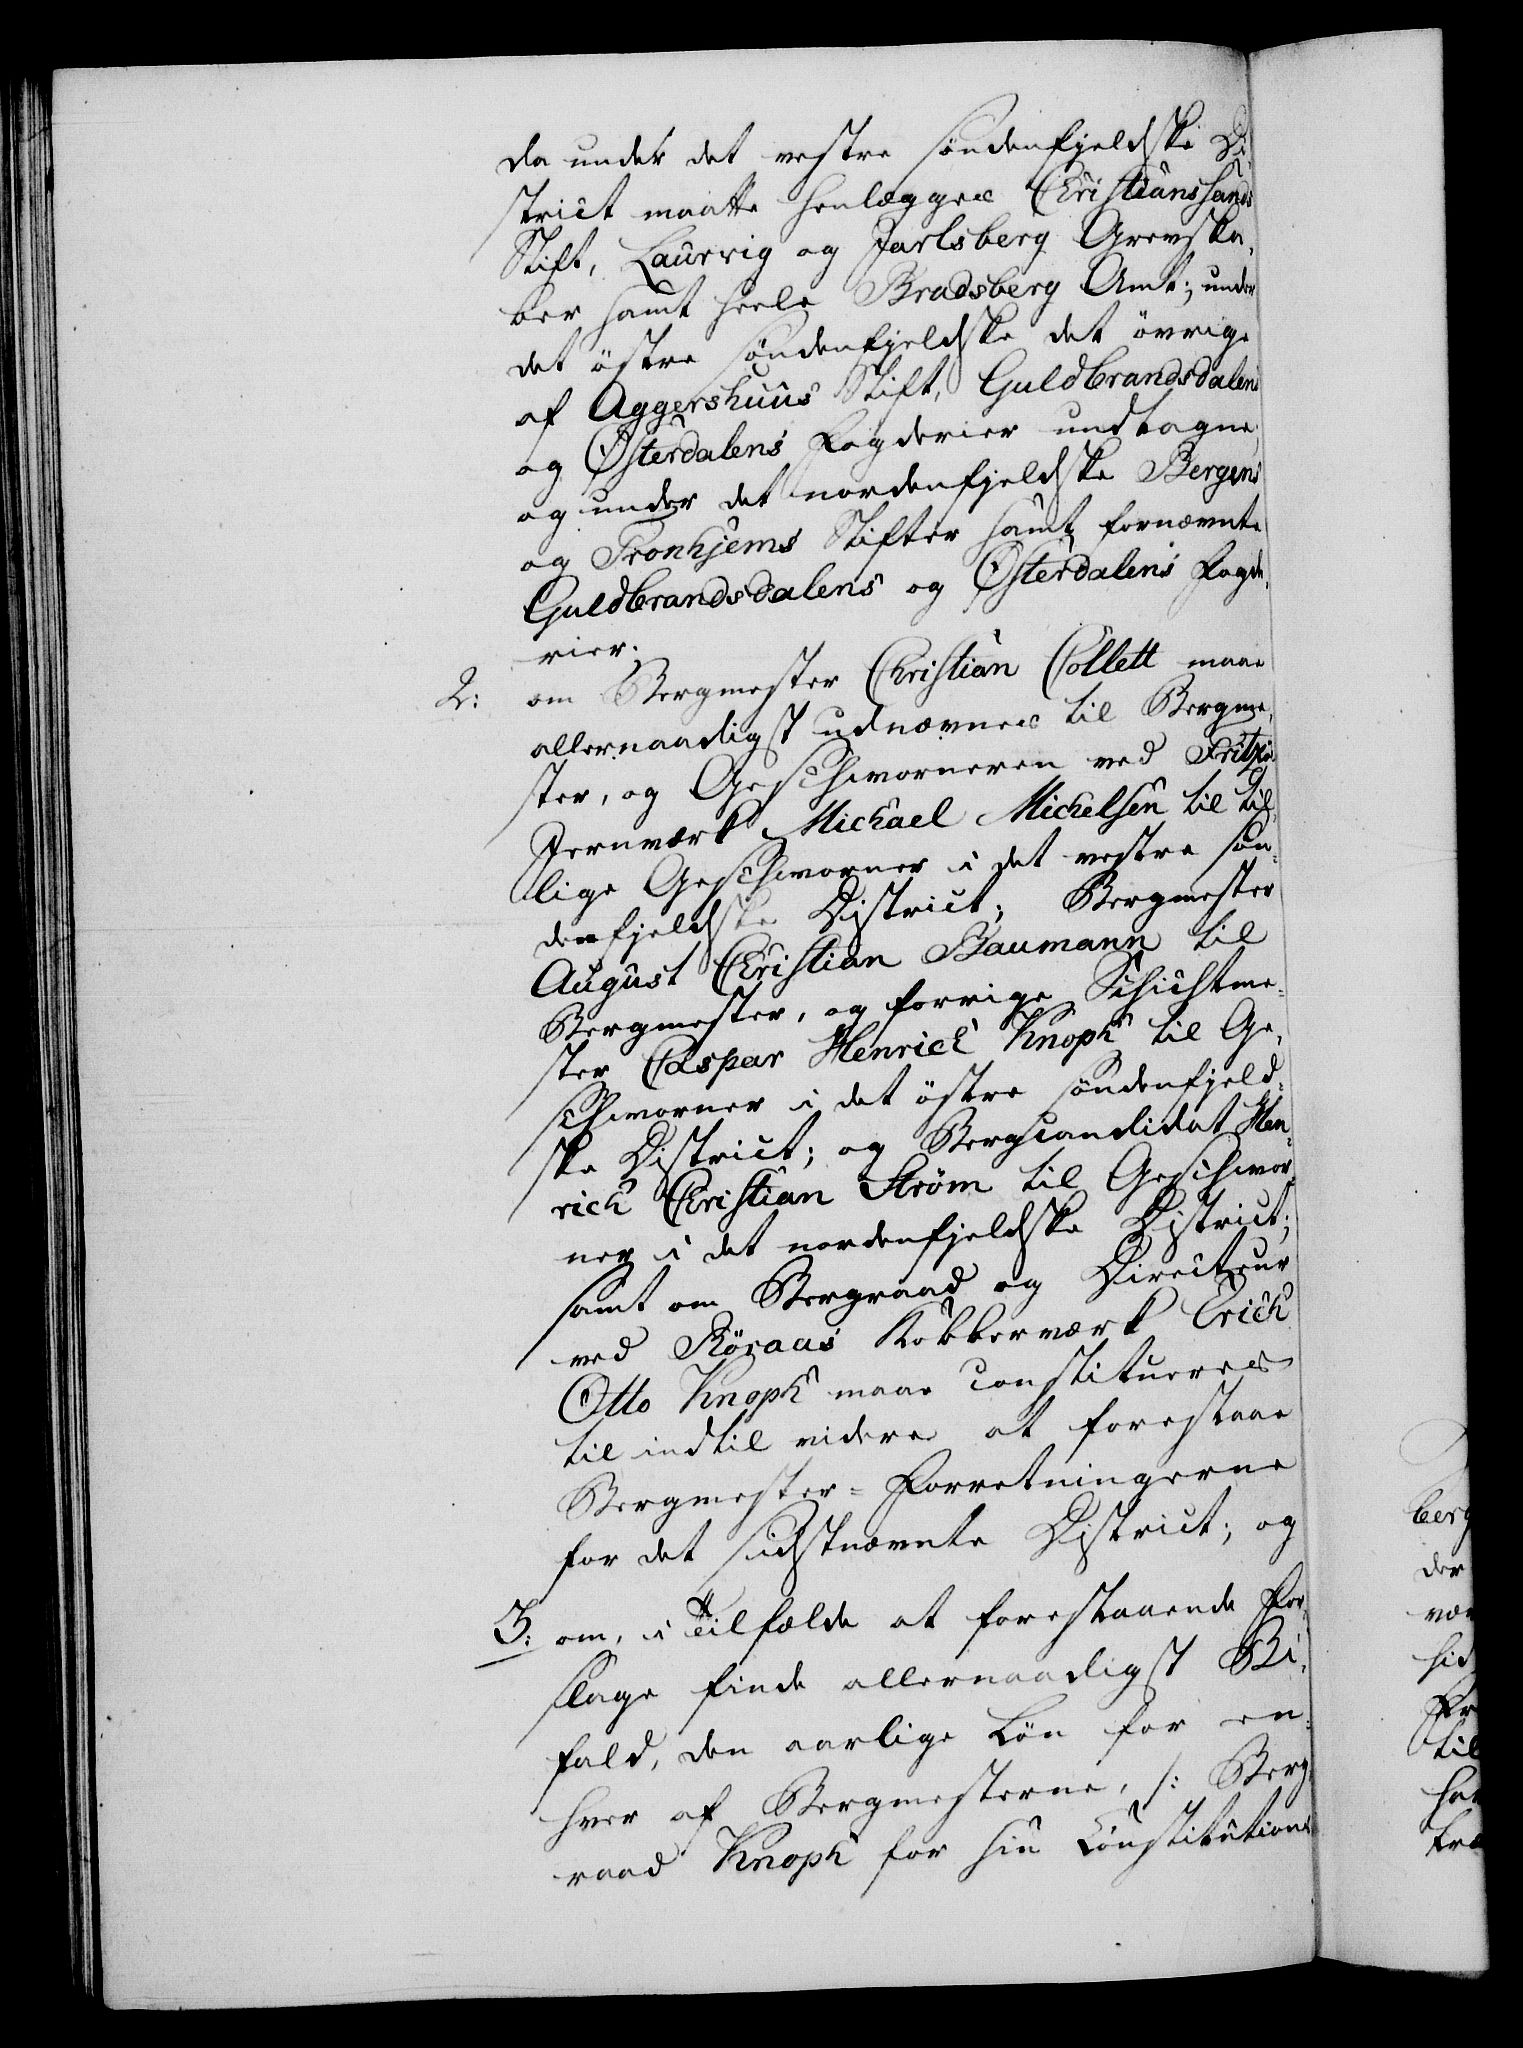 da under det vestre söndenfjeldske Di-
strict maatte henlægges Christianssands
Stift, Laurvig og Jarlsberg Grevska-
ber samt heele Bradsberg Amt; under
det östre söndenfjeldske det övrige
af Aggershuus Stift, Guldbrandsdalens
og Østerdalens Fogderier undtagne,
og under det nordenfjeldske Bergens
og Tronhjems Stifter samt fornævnte
Guldbrandsdalens og Østerdalens Fogde-
rier.
2: om Bergmester Christian Collett maae
allernaadigst udnævnes til Bergme-
ster, og Geschworneren ved Fritzøe
Jernværk Michael Michelsen til til-
lige Geschworner i det vestre sön-
denfjeldske District; Bergmester
August Christian Baumann til
Bergmester, og forrige Schichtme-
ster Caspar Henrich Knoph til Ge-
schworner i det östre söndenfjeld-
ske District; og Bergcandidat Hen-
rich Christian Strøm til Geschwor-
ner i det nordenfjeldske District;
samt om Bergraad og Directeur
ved Röraas Kobberværk Erich
Otto Knoph maae constitueres
til indtil videre at forestaae
Bergmester-Forretningerne
for det sidstnævnte District; og
3: om, i Tilfælde at forestaaende For-
slage finde allernaadigst Bi-
fald, den aarlige Løn for en-
hver af Bergmesterne, /: Berg-
raad Knoph for sin Constitutions
berg
der
vær
hid
Fr
til
har
fra